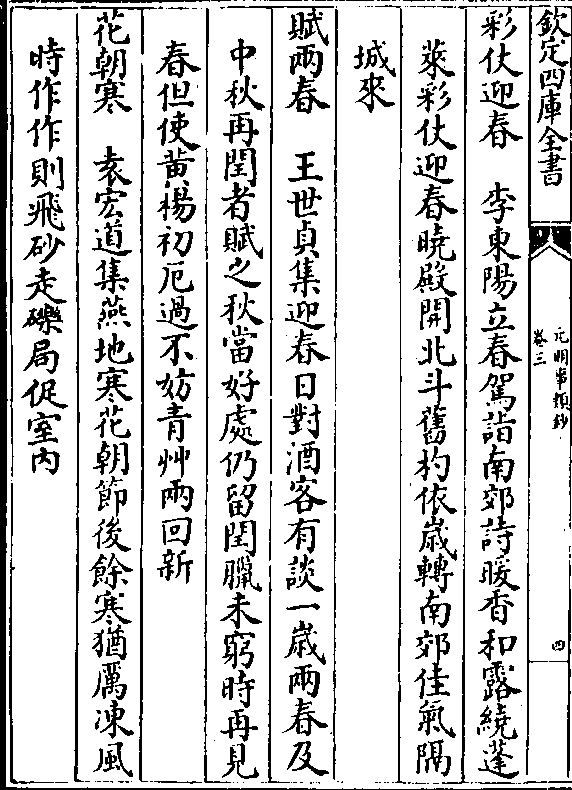 欽定四庫全書
元明事類鈔
卷三
四
彩仗迎春　李東陽立春駕詣南郊詩暖香和露繞蓬
萊彩仗迎春曉殿開北斗舊杓依歲轉南郊佳氣隔
城來
賦兩春　王世貞集迎春日對酒客有談一歲兩春及
中秋再閏者賦之秋當好處仍留閏臘未窮時再見
春但使黃楊初厄過不妨青艸兩回新
花朝寒　袁宏道集燕地寒花朝節後餘寒猶厲凍風
時作作則飛砂走礫局促室內